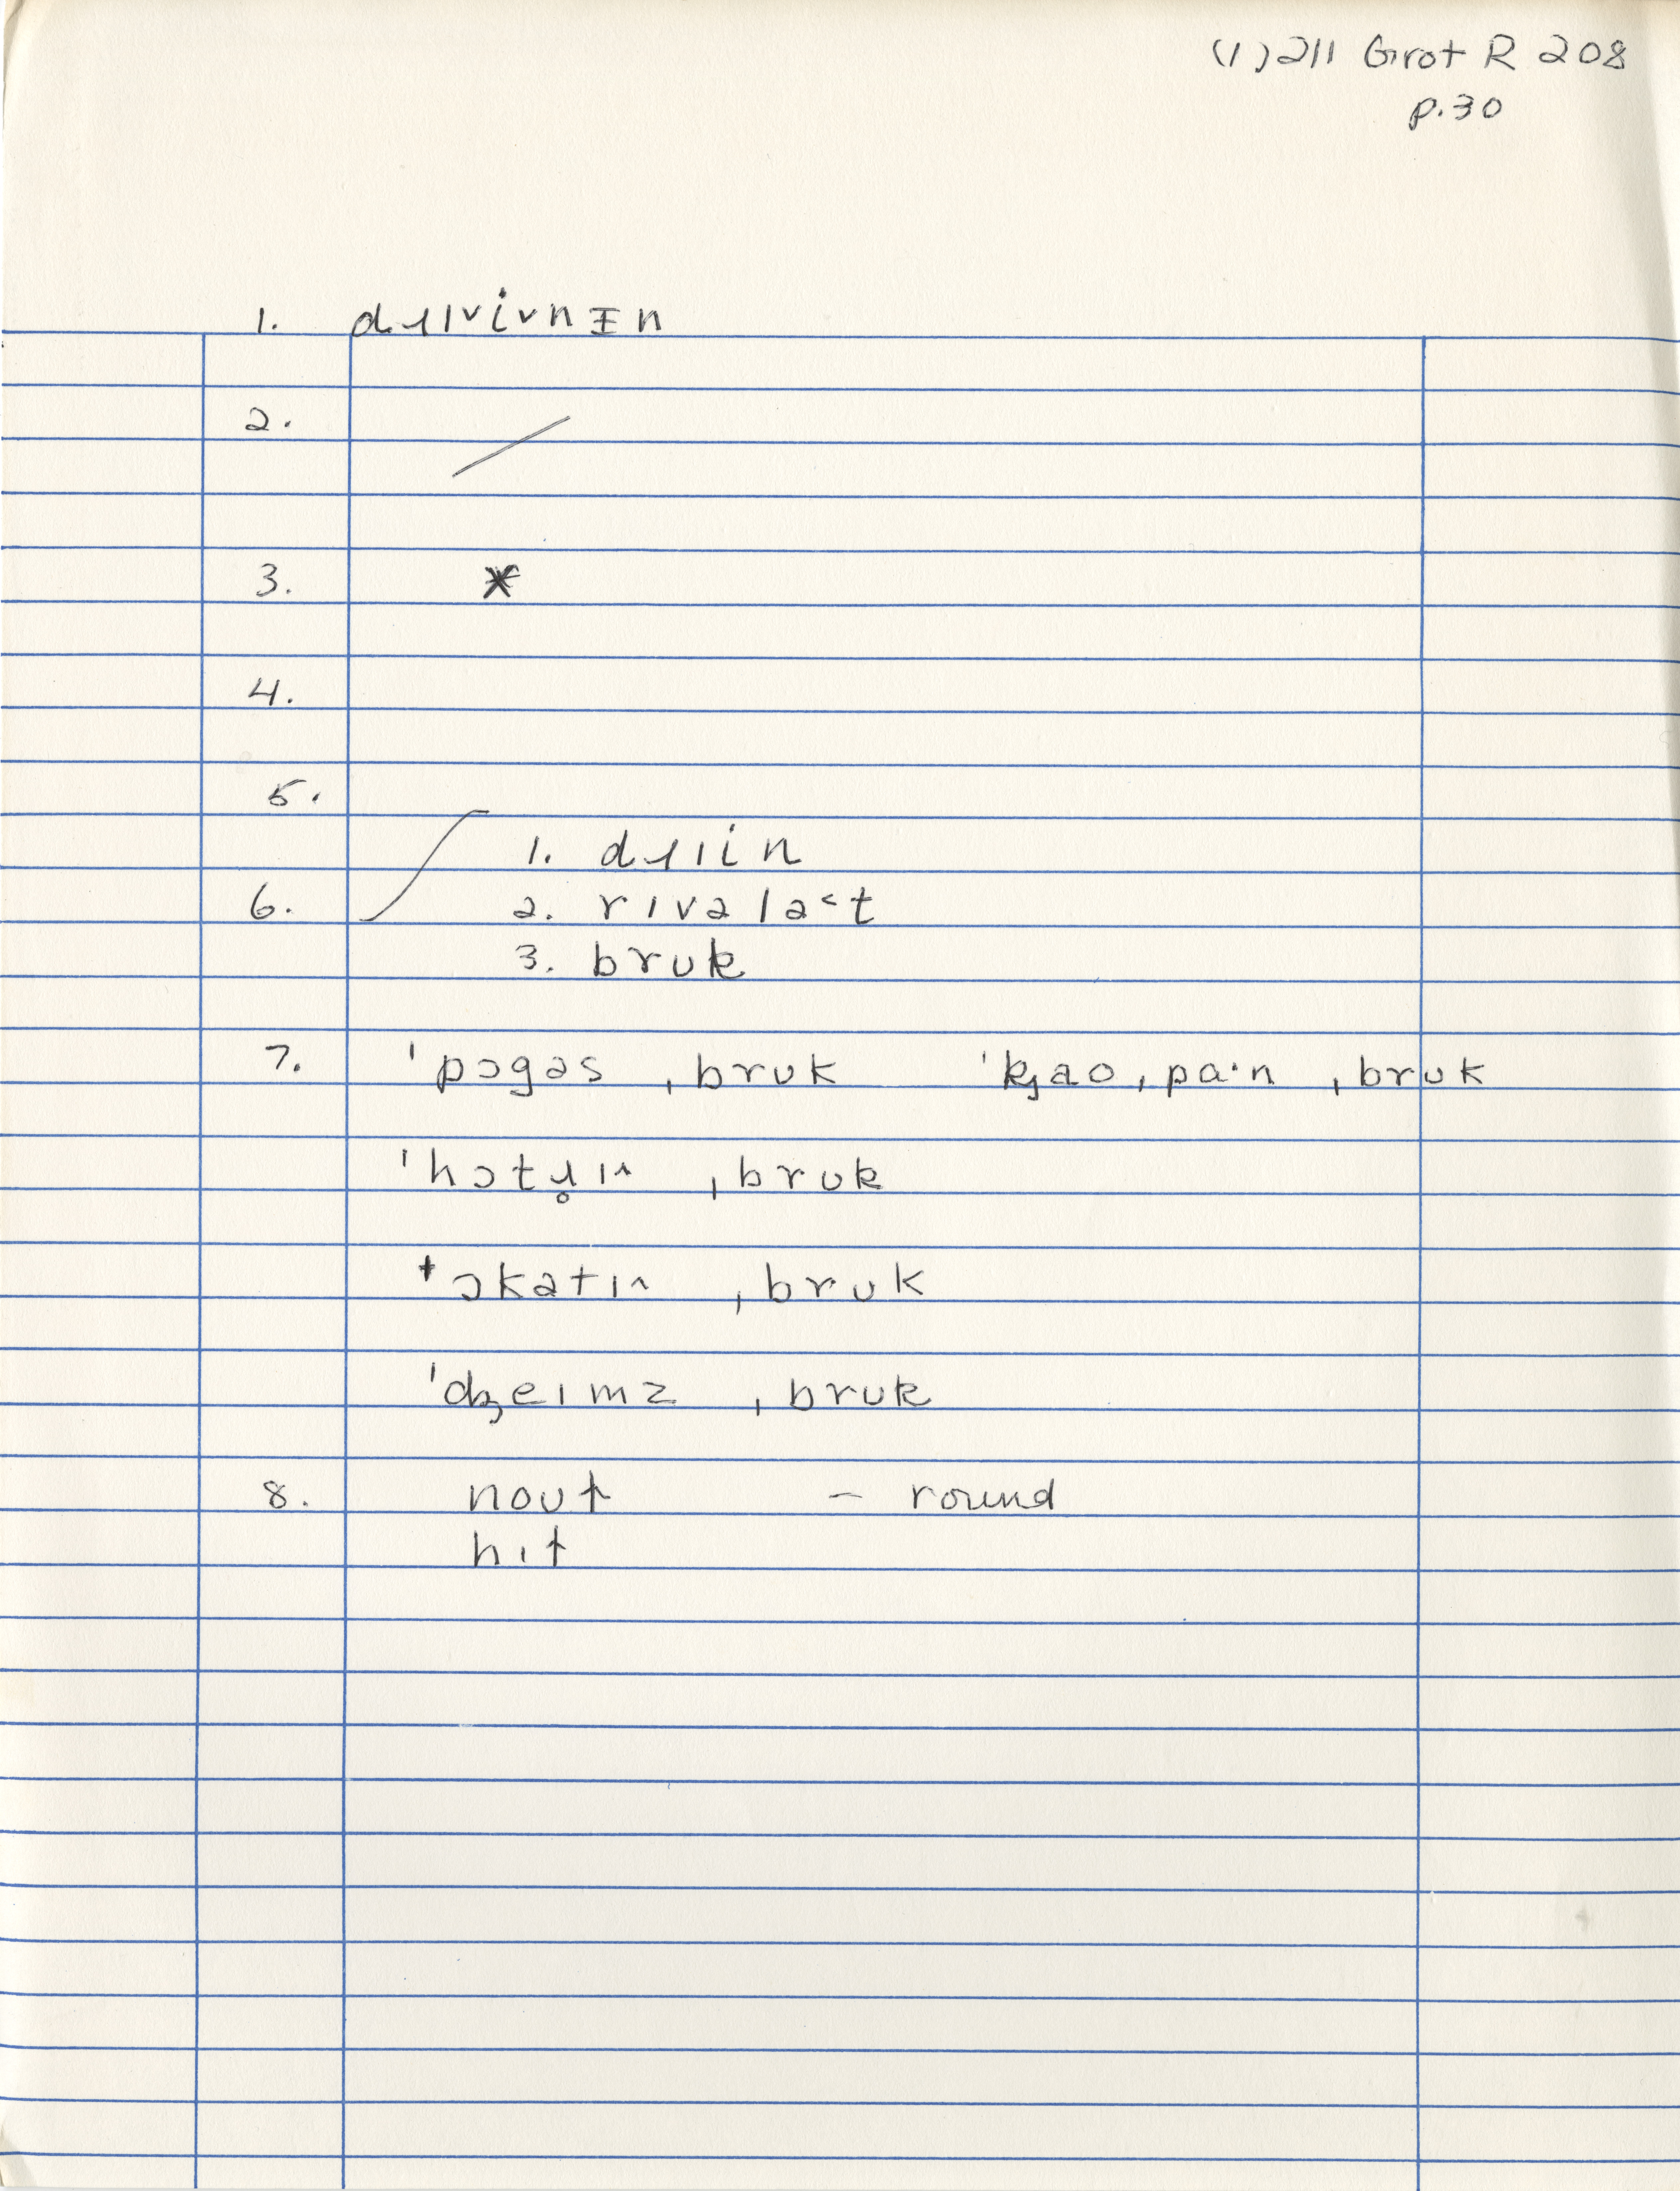 (1)211 Grot R 208
p.30
1. dɹɪᵛi̇ᵛnɪn
2. /
3. *
4.
5.
1. dɹɪin
6. 2. rɪvəla˂t
3. bruk
7. ˈpɔgəs ˌbruk ˈkɟaoˌpa·n ˌbruk
ˈhɔtɹ̥ɪ^ ˌbruk
ˈɔkətɪ^ ˌbruk
ˈdʒeɪmz ˌbruk
8. nout – round
hɪt